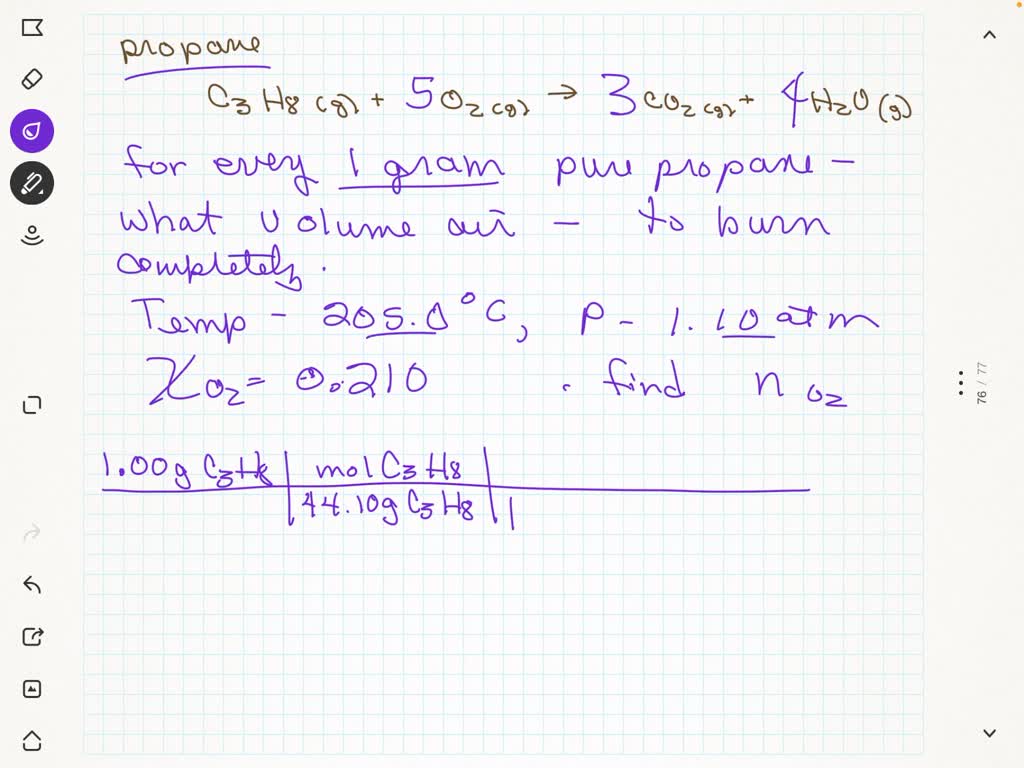 propane
C3 H8 (g) + 5 O2 (g) → 3 CO2 (g) + 4 H2O (g)
for every 1 gram pure propane –
what volume air – to burn
completely.
Temp – 205.0 °C, P – 1.10 atm
XO2 = 0.210 . find n O2
1.00g C3H8 | mol C3H8 |
44.10g C3H8 | 1
76 / 77